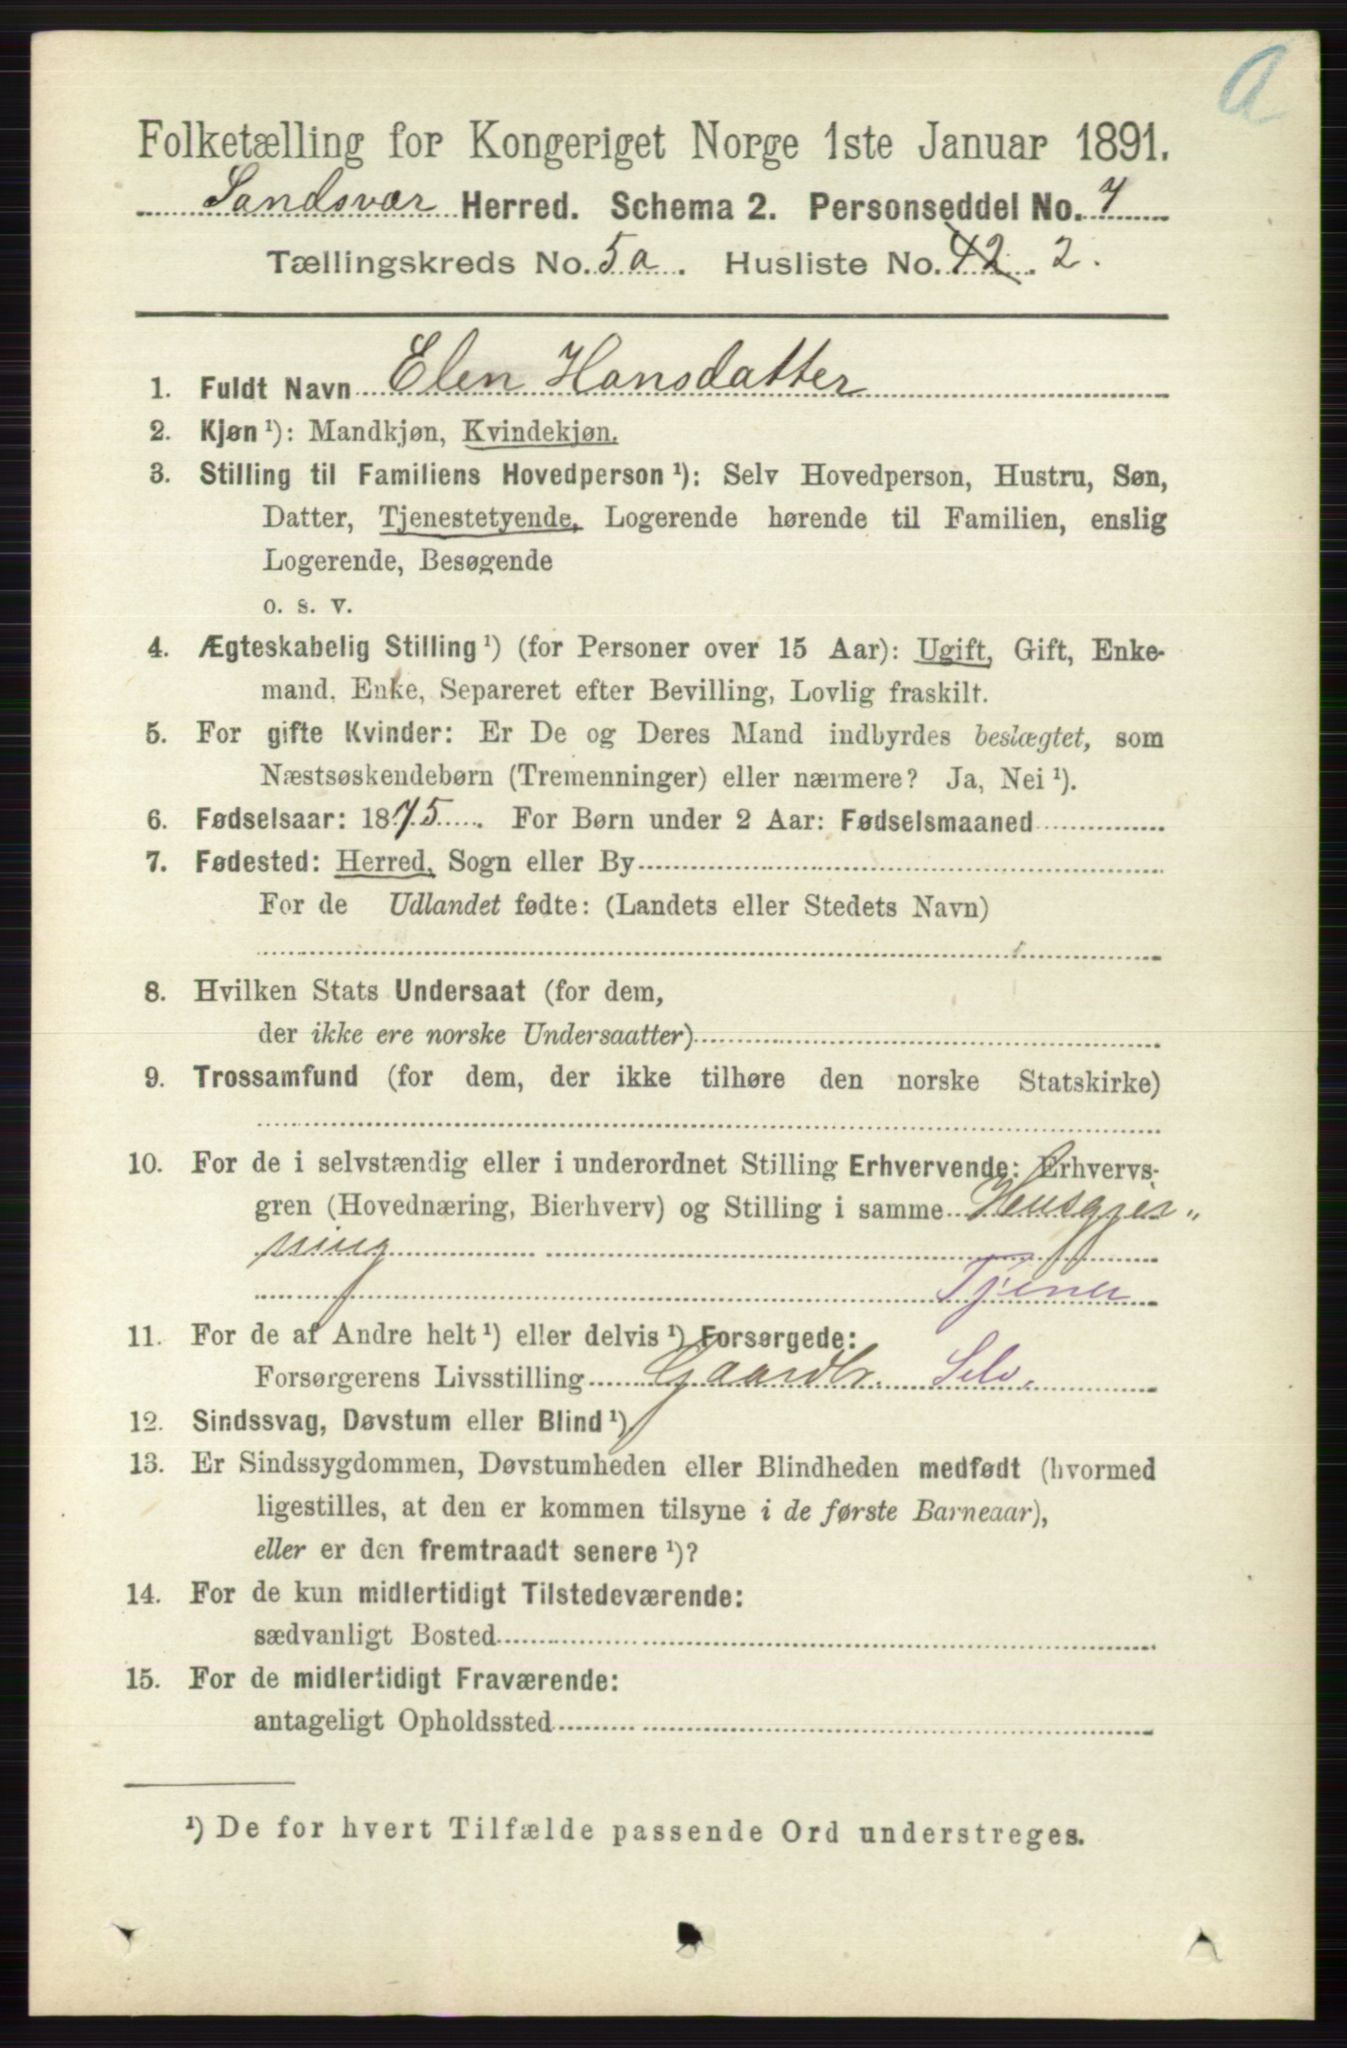 a
Folketælling for Kongeriget Norge 1ste Januar 1891.
Sandsvær Herred. Schema 2. Personseddel No. 7
Tællingskreds No. 5a. Husliste No. 42. 2.
1. Fuldt Navn Elen Hansdatter
2. Kjøn ¹): Mandkjøn, Kvindekjøn.
3. Stilling til Familiens Hovedperson ¹): Selv Hovedperson, Hustru, Søn,
Datter, Tjenestetyende, Logerende hørende til Familien, enslig
Logerende, Besøgende
o. s. v.
4. Ægteskabelig Stilling ¹) (for Personer over 15 Aar): Ugift, Gift, Enke-
mand, Enke, Separeret efter Bevilling, Lovlig fraskilt.
5. For gifte Kvinder: Er De og Deres Mand indbyrdes beslægtet, som
Næstsøskendebørn (Tremenninger) eller nærmere? Ja, Nei ¹).
6. Fødselsaar: 1875. For Børn under 2 Aar: Fødselsmaaned
7. Fødested: Herred, Sogn eller By
For de Udlandet fødte: (Landets eller Stedets Navn)
8. Hvilken Stats Undersaat (for dem,
der ikke ere norske Undersaatter)
9. Trossamfund (for dem, der ikke tilhøre den norske Statskirke)
10. For de i selvstændig eller i underordnet Stilling Erhvervende: Erhvervs-
gren (Hovednæring, Bierhverv) og Stilling i samme Husgjer„
ning
Tjener
11. For de af Andre helt ¹) eller delvis ¹) Forsørgede:
Forsørgerens Livsstilling Gaardbr. Selv.
12. Sindssvag, Døvstum eller Blind ¹)
13. Er Sindssygdommen, Døvstumheden eller Blindheden medfødt (hvormed
ligestilles, at den er kommen tilsyne i de første Barneaar),
eller er den fremtraadt senere ¹)?
14. For de kun midlertidigt Tilstedeværende:
sædvanligt Bosted
15. For de midlertidigt Fraværende:
antageligt Opholdssted
¹) De for hvert Tilfælde passende Ord understreges.